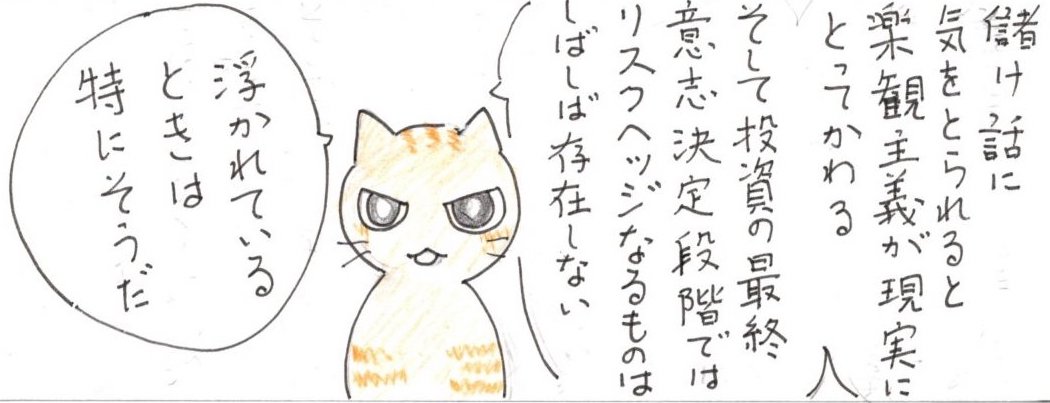 儲け話に
気をとられると
楽観主義が現実に
とってかわる
そして投資の最終
意志決定段階では
リスクヘッジなるものは
しばしば存在しない
浮かれている
ときは
特にそうだ